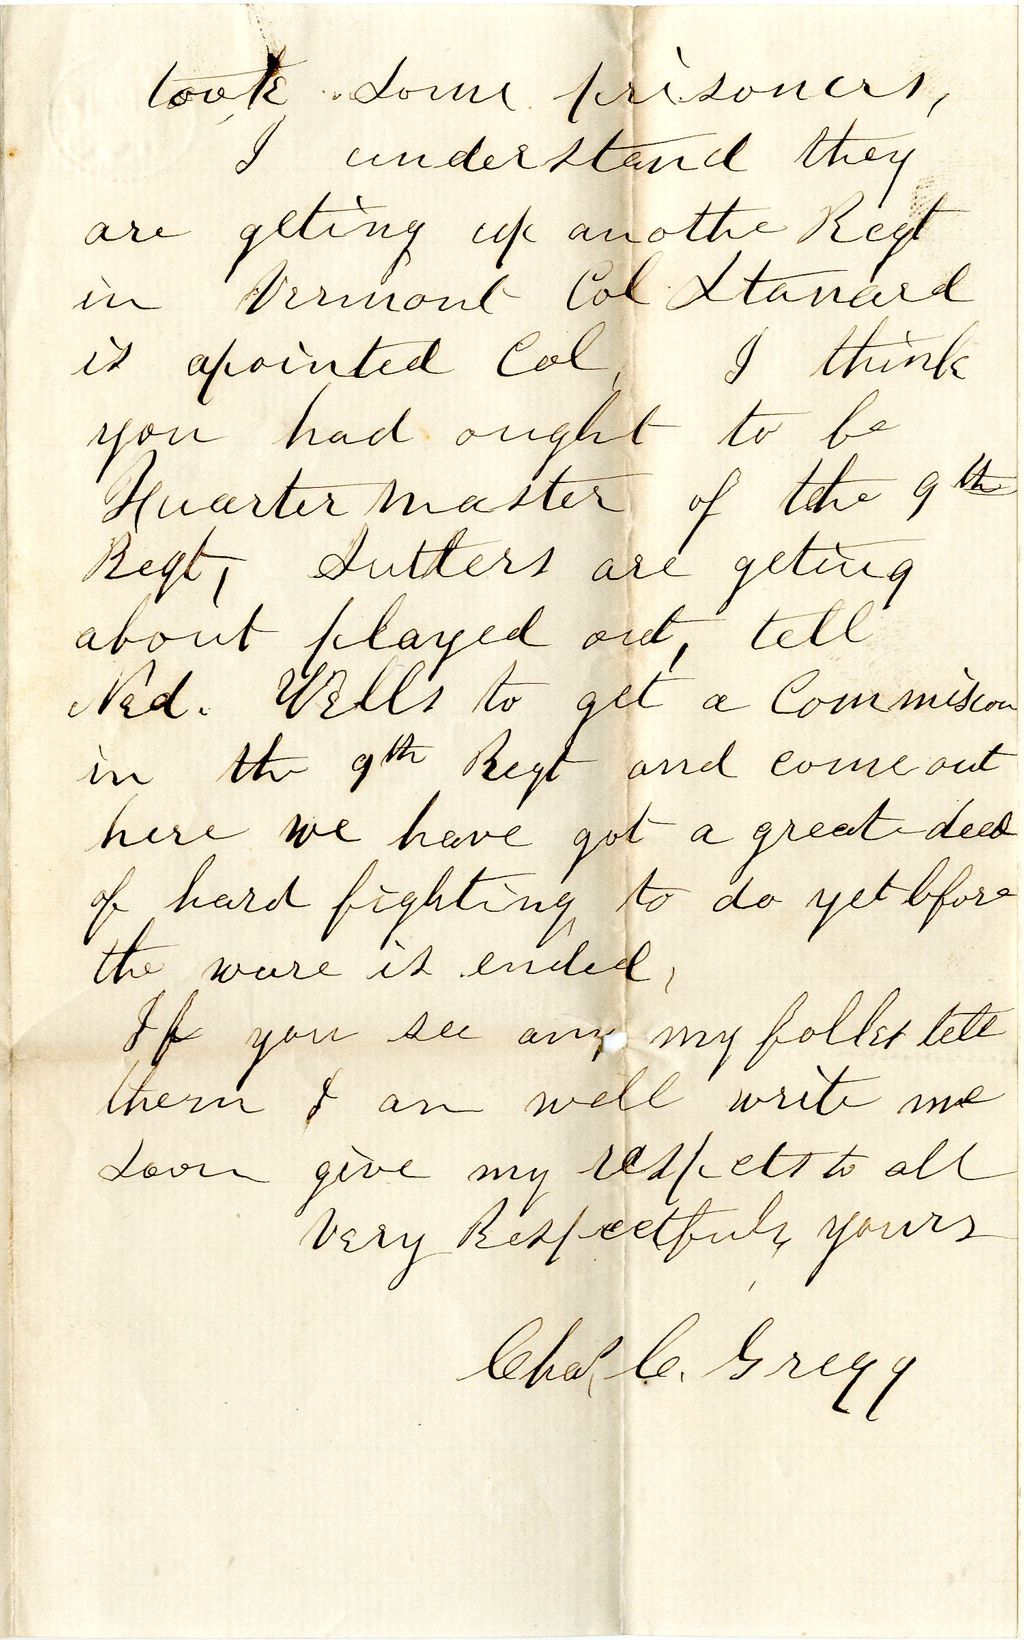 took some prisoners,
I understand they
are geting up anothe Regt
in Vermont Col Stanard
is apointed Col, I think
you had ought to be
Quarter master of the 9th
Regt, Sutlers are geting
about played out, tell
Ned. Wells to get a Commision
in the 9th Regt and come out
here we have got a great deal
of hard fighting to do yet bfore
the ware is ended,
If you see any my folkes tell
them I am well write me
soon give my respects to all
Very Respectfuly yours
Chas, C. Gregg